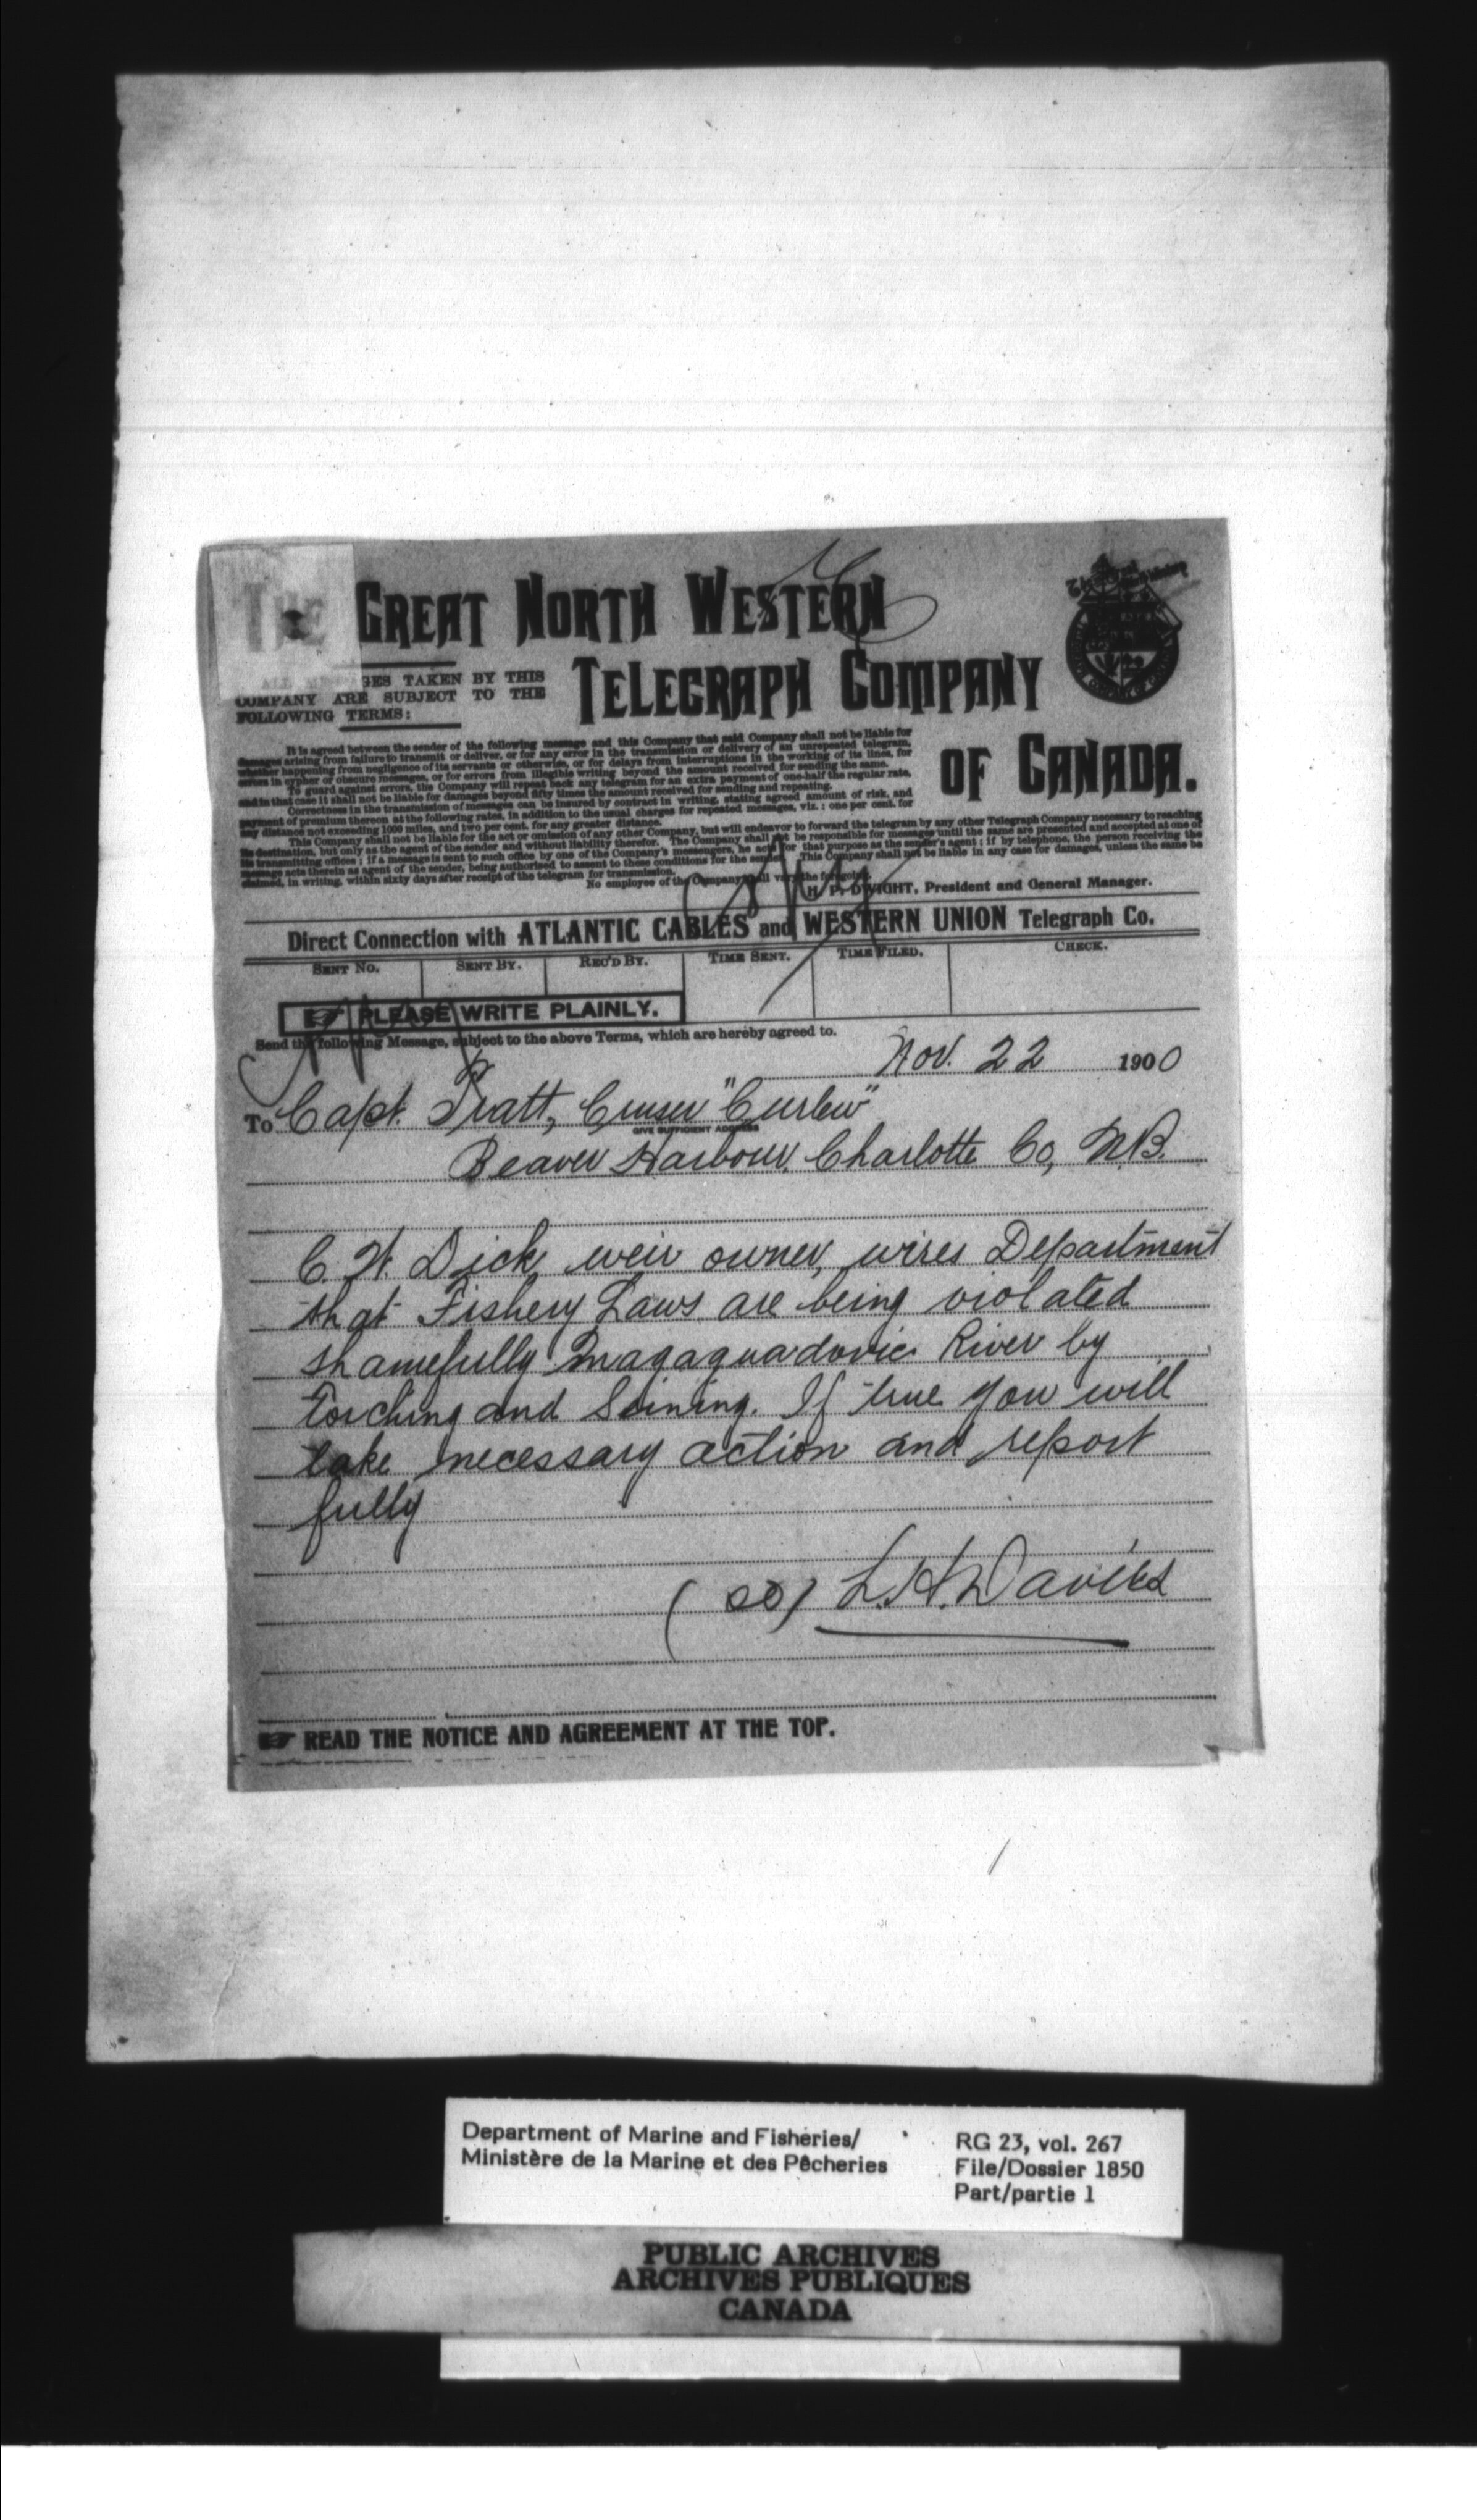 THE GREAT NORTH WESTERN
TELEGRAPH COMPANY
OF CANADA.
ALL MESSAGES TAKEN BY THIS
COMPANY ARE SUBJECT TO THE
FOLLOWING TERMS:
It is agreed between the sender of the following message and this Company that said Company shall not be liable for
damages arising from failure to transmit or deliver, or for any error in the transmission or delivery of an unrepeated telegram,
whether happening from negligence of its servants or otherwise, or for delays from interruptions in the working of its lines, for
errors in cypher or obscure messages, or for errors from illegible writing beyond the amount received for sending the same.
To guard against errors, the Company will repeat back any telegram for an extra payment of one-half the regular rate,
and in that case it shall not be liable for damages beyond fifty times the amount received for sending and repeating.
Correctness in the transmission of messages can be insured by contract in writing, stating agreed amount of risk, and
payment of premium thereon at the following rates, in addition to the usual charges for repeated messages, viz.: one per cent. for
any distance not exceeding 1000 miles, and two per cent. for any greater distance.
This Company shall not be liable for the act or omission of any other Company, but will endeavor to forward the telegram by any other Telegraph Company necessary to reaching
its destination, but only as the agent of the sender and without liability therefor. The Company shall not be responsible for messages until the same are presented and accepted at one of
its transmitting offices; if a message is sent to such office by one of the Company's messengers, he acts for that purpose as the sender's agent; if by telephone, the person receiving the
message acts therein as agent of the sender, being authorised to assent to these conditions for the sender. This Company shall not be liable in any case for damages, unless the same be
claimed, in writing, within sixty days after receipt of the telegram for transmission.
No employee of the Company shall vary the foregoing.
H. P. DWIGHT, President and General Manager.
Direct Connection with ATLANTIC CABLES and WESTERN UNION Telegraph Co.
SENT NO. SENT BY. REC'D BY. TIME SENT. TIME FILED. CHECK.
PLEASE WRITE PLAINLY.
Send the following Message, subject to the above Terms, which are hereby agreed to.
Nov. 22 1900
To Capt. Pratt, Cruiser "Curlew"
GIVE SUFFICIENT ADDRESS
Beaver Harbour, Charlotte Co, N.B.
C. H. Dick, weir owner, wires Department
that Fishery Laws are being violated
shamefully Magaguadavic River by
torching and Seining. If true you will
take necessary action and report
fully
(sd) L.H. Davies
READ THE NOTICE AND AGREEMENT AT THE TOP.
Department of Marine and Fisheries/
Ministère de la Marine et des Pêcheries
RG 23, vol. 267
File/Dossier 1850
Part/partie 1
PUBLIC ARCHIVES
ARCHIVES PUBLIQUES
CANADA